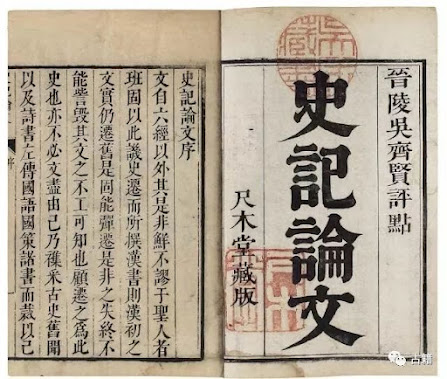 晉陵吳齊賢評點
史記論文
尺木堂藏版
史記論文序
文自六經以外其是非鮮不謬于聖人者
班固以此譏史遷而所撰漢書則漢初之
文實仍遷舊是固能彈遷是非之失終不
能訾毀其文之不工可知也顧遷之為此
史也亦不必文盡由己乃雜釆古史舊聞
以及詩書左傳國語國策諸書而裁以己
序